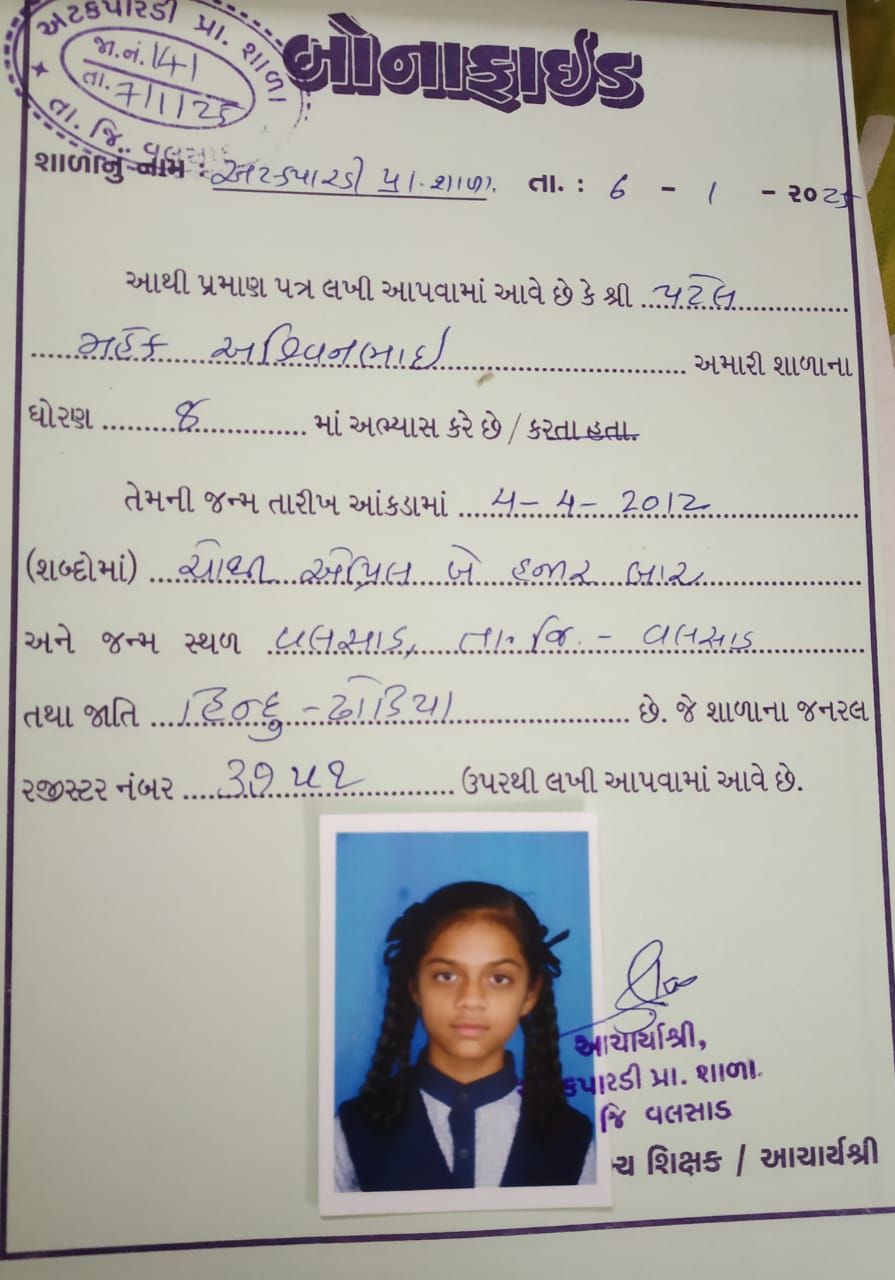 અટકપારડી પ્રા. શાળા
જા.નં. 141
તા.
તા. જિ. વલસાડ
બોનાફાઈડ
શાળાનું નામ : અટકપારડી પ્રા. શાળા. તા. : 6 - 1 - ૨૦
આથી પ્રમાણ પત્ર લખી આપવામાં આવે છે કે શ્રી પટેલ
મહેક અશ્વિનભાઇ અમારી શાળાના
ધોરણ 8 માં અભ્યાસ કરે છે / કરતા હતા.
તેમની જન્મ તારીખ આંકડામાં 4-4-2012
(શબ્દોમાં) ચોથી એપ્રિલ બે હજાર બાર
અને જન્મ સ્થળ વલસાડ, તા. જિ. - વલસાડ
તથા જાતિ હિન્દુ - ઢોડિયા છે. જે શાળાના જનરલ
રજીસ્ટર નંબર ઉપરથી લખી આપવામાં આવે છે.
આચાર્યાશ્રી,
કપારડી પ્રા. શાળા.
જિ વલસાડ
ય શિક્ષક / આચાર્યશ્રી